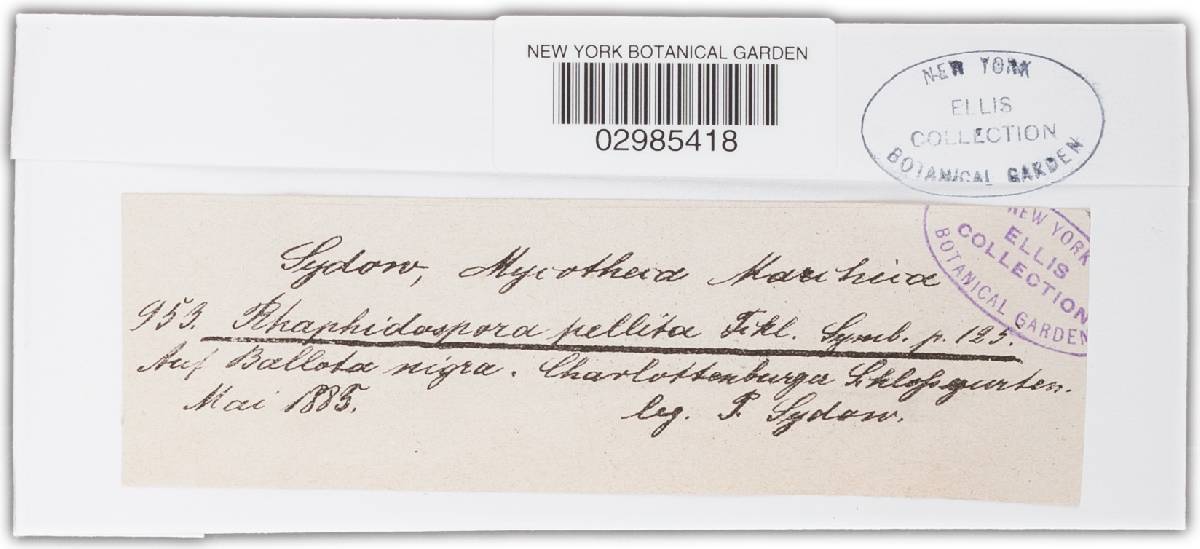 NEW YORK BOTANICAL GARDEN
02985418
NEW YORK
ELLIS
COLLECTION
BOTANICAL GARDEN
NEW YORK
ELLIS
COLLECTION
BOTANICAL GARDEN
Sydow, Mycotheca Marchica
953. Rhaphidospora pellita Fckl. Symb. p. 125.
Auf Ballota nigra. Charlottenburger Schloßgarten.
Mai 1885. leg. P. Sydow.